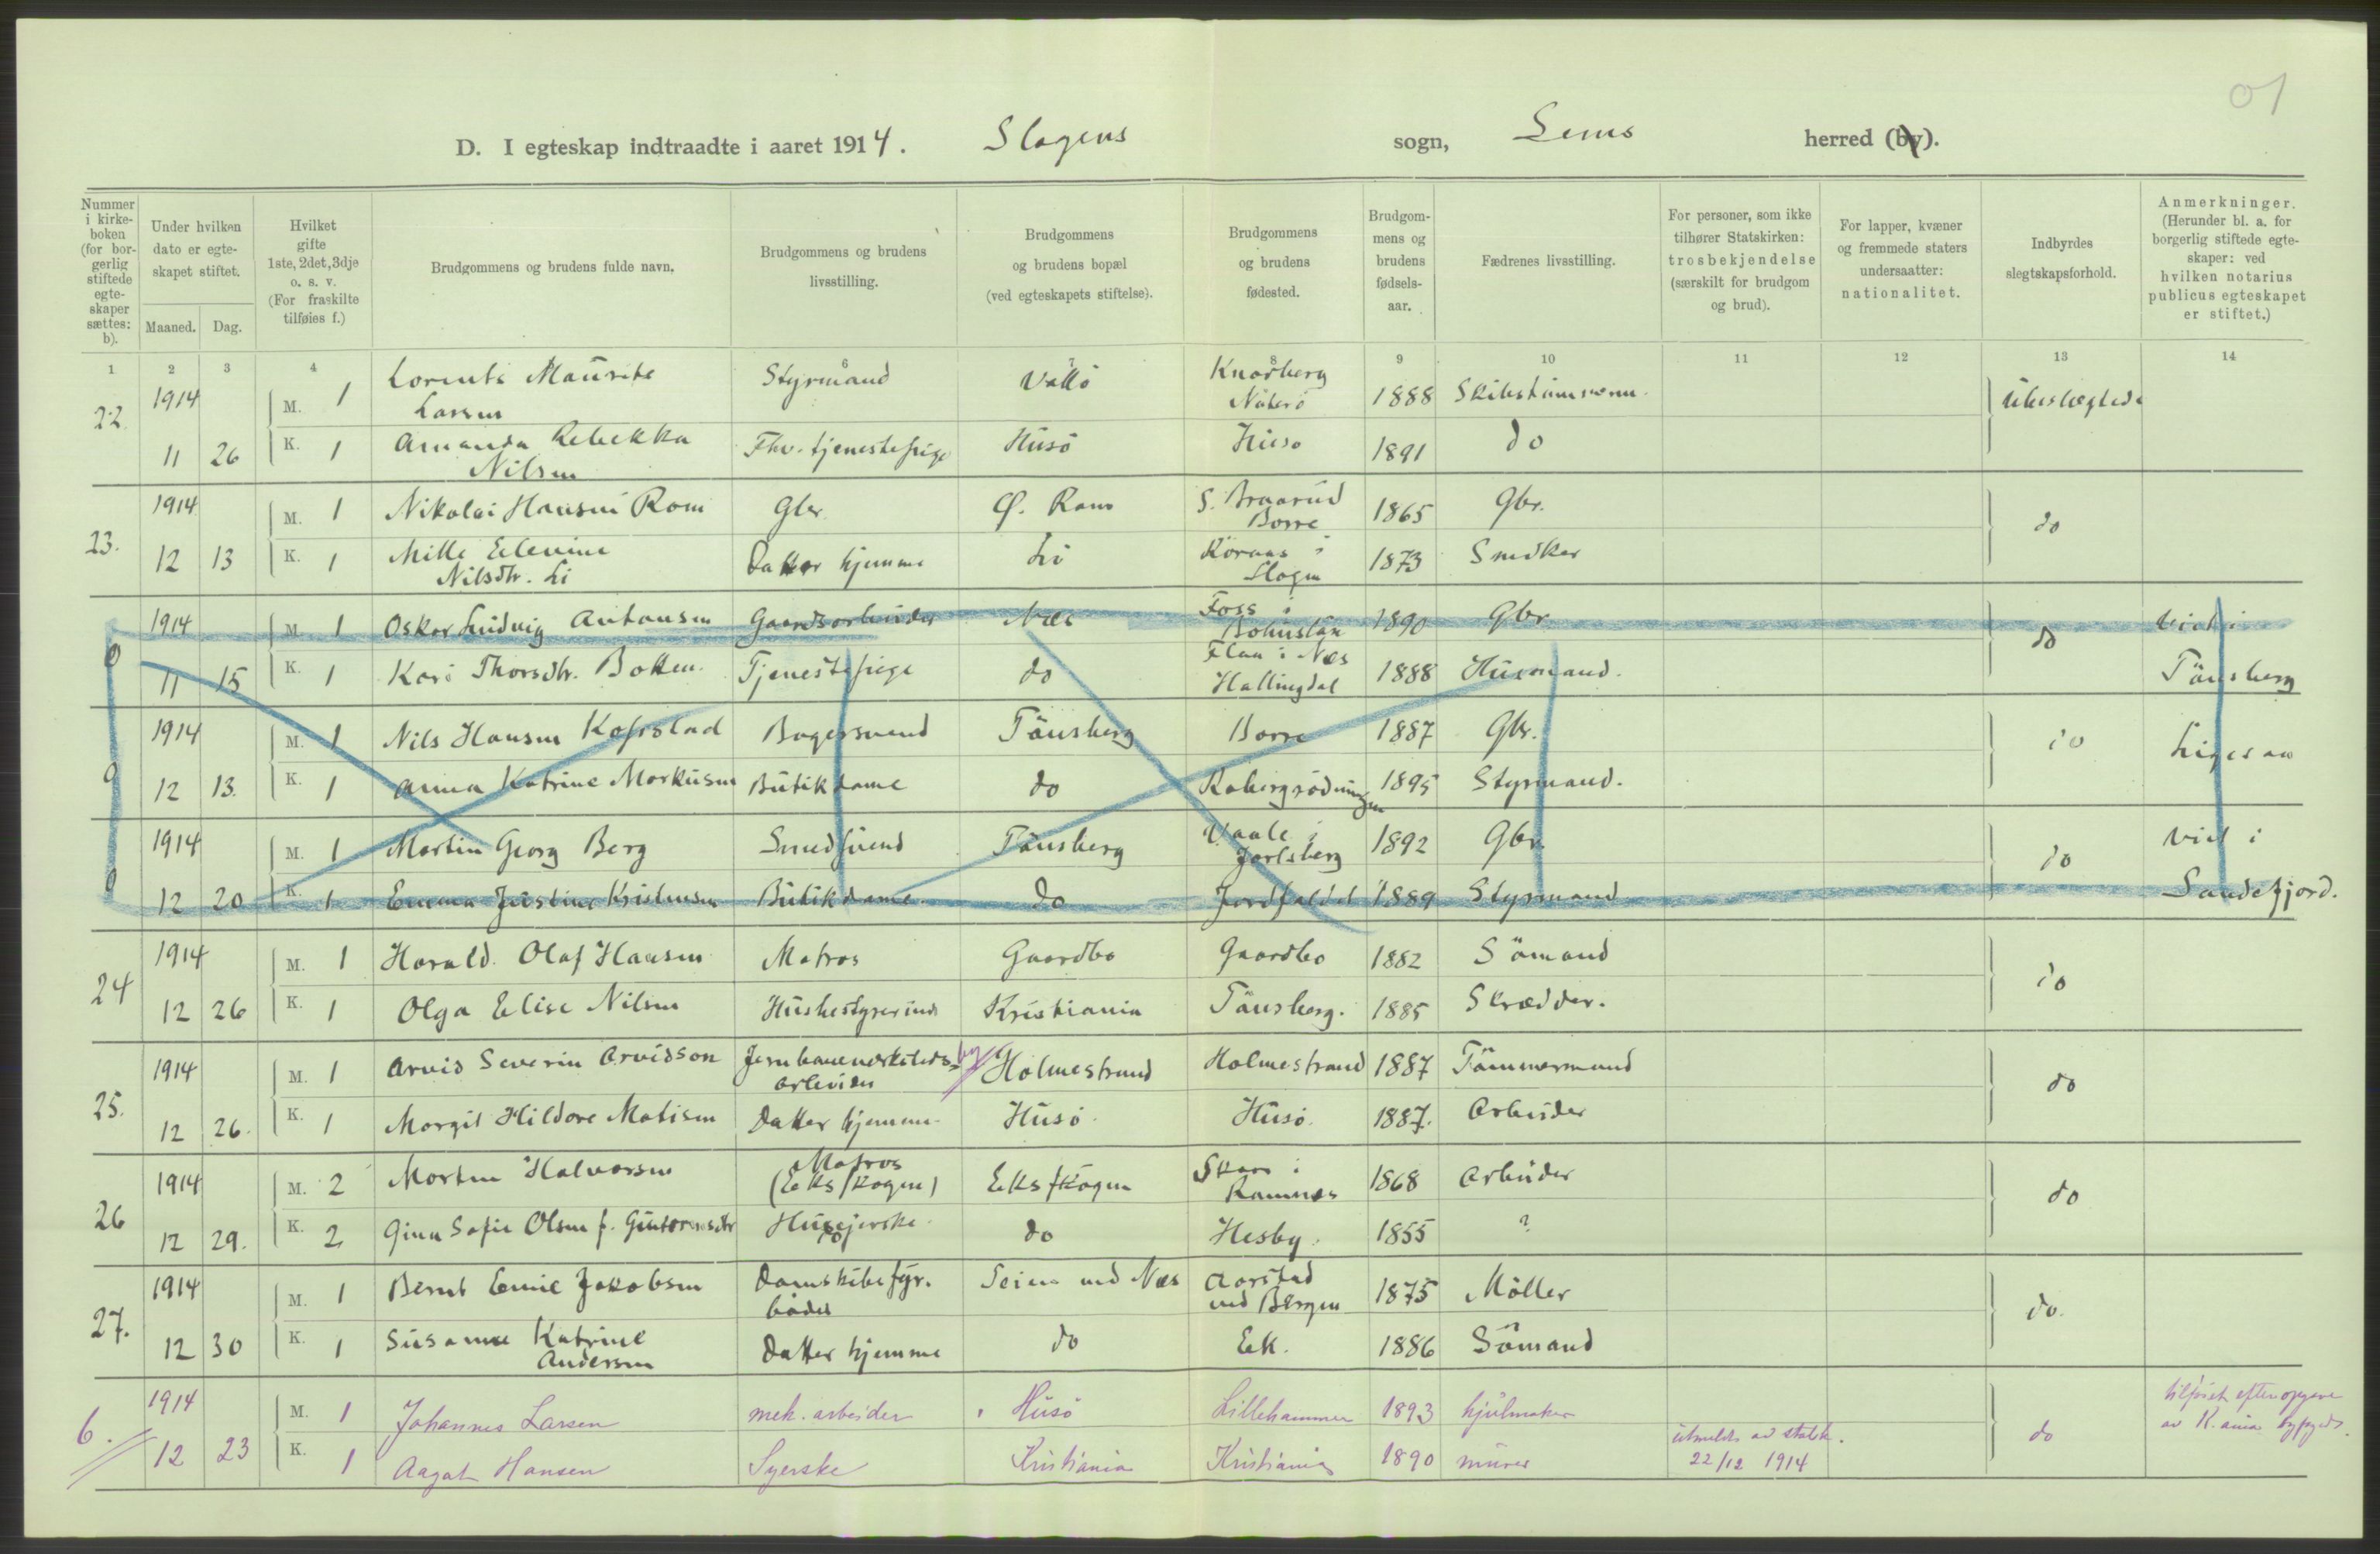 01
D. I egteskap indtraadte i aaret 1914. Slagens sogn, Sems herred (by).
Nummer i kirkeboken (for borgerlig stiftede egteskaper sættes: b).
Under hvilken dato er egteskapet stiftet.
Maaned. Dag.
Hvilket gifte 1ste, 2det, 3dje o. s. v. (For fraskilte tilføies f.)
Brudgommens og brudens fulde navn.
Brudgommens og brudens livsstilling.
Brudgommens og brudens bopæl (ved egteskapets stiftelse).
Brudgommens og brudens fødested.
Brudgommens og brudens fødselsaar.
Fædrenes livsstilling.
For personer, som ikke tilhører Statskirken: trosbekjendelse (særskilt for brudgom og brud).
For lapper, kvæner og fremmede staters undersaatter: nationalitet.
Indbyrdes slegtskapsforhold.
Anmerkninger. (Herunder bl. a. for borgerlig stiftede egteskaper: ved hvilken notarius publicus egteskapet er stiftet.)
1 2 3 4 6 7 8 9 10 11 12 13 14
22. 1914 M. 1 Lorents Maurits Larsen Styrmand Vallö Knarberg Nøterö 1888 Skibstömmerm. Ubeslegtede
11 26 K. 1 Amanda Rebekka Nilsen Fhv. tjenestepige Husö Huso 1891 do
23. 1914 M. 1 Nikolai Hansen Rom Gbr. Ø. Rom S. Braarud Borre 1865 Gbr. do
12 13 K. 1 Mille Elevine Nilsdtr. Li Datter hjemme Li i Slagen 1873 Snedker
0 1914 M. 1 Oskar Ludvig Antonsen Gaardsarbeider Næs Foss i Bohuslän 1890 Gbr. do Viet i Tönsberg
11 15 K. 1 Kari Thorsdtr. Botten Tjenestepige do i Næs Hallingdal 1888 Husmand.
0 1914 M. 1 Nils Hansen Kopstad Bagersvend Tönsberg Borre 1887 Gbr. do Ligesaa
12 13. K. 1 Anna Katrine Markusen Butikdame do 1895 Styrmand.
0 1914 M. 1 Martin Georg Berg Smedsvend Tönsberg Vaale i Jarlsberg 1892 Gbr. do Viet i Sandefjord.
12 20 K. 1 Emma Justine Kristensen Butikdame do Jordfaldet 1889 Styrmand
24 1914 M. 1 Harald Olaf Hansen Matros Gaardbo Gaardbo 1882 Sömand do
12 26 K. 1 Olga Elise Nilsen Husbestyrerinde Kristiania Tönsberg. 1885 Skrædder.
25. 1914 M. 1 Arvid Severin Arvidson Jernbaneverksteds- arbeider by Holmestrand Holmestrand 1887 Tömmermand do
12 26. K. 1 Margit Hildore Matisen Datter hjemme Husö Husö 1887. Arbeider
26 1914 M. 2 Morten Halvorsen Matros (Eksskogen) Eksskogen i Ramnes 1868 Arbeider do
12 29. K. 2 Gina Sofie Olsen f. Guttormsdtr Huseierske do Hesby. 1855 ?
27. 1914 M. 1 Bernt Emil Jakobsen Damskibsfyrböder ved Næs Aarstad ved Bergen 1875 Möller do.
12 30 K. 1 Susanne Katrine Andersen Datter hjemme do Ek. 1886 Sömand
6. 1914 M. 1 Johannes Larsen mek. arbeider Husö Lillehammer 1893 hjulmaker do tilföiet efter opgave av K.ania byfogd.
12 23 K. 1 Aagot Hansen Syerske Kristiania Kristiania 1890 murer utmeldt av statsk. 22/12 1914